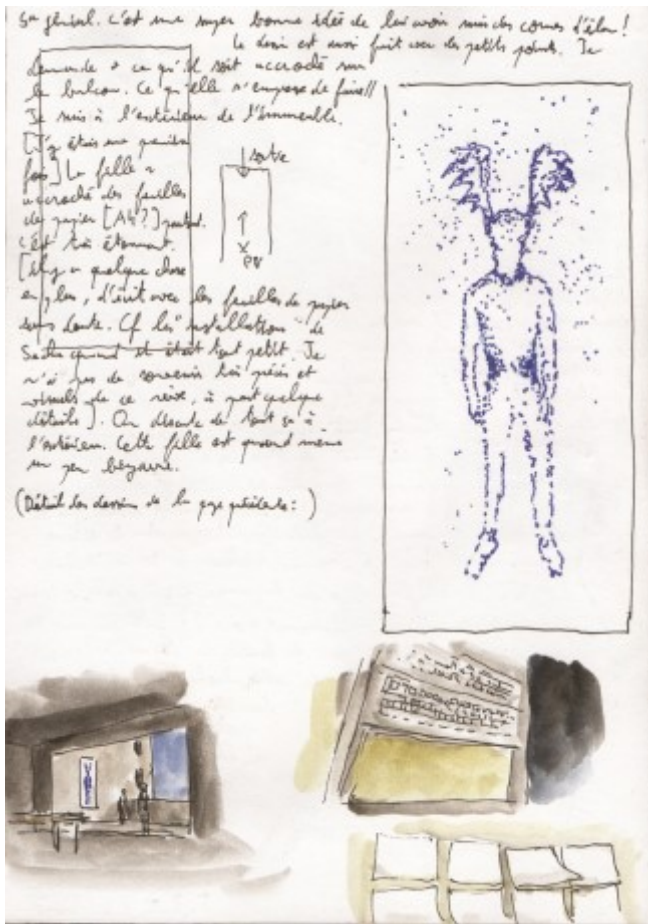 génial. C'est une super bonne idée de lui avoir mis des cornes d'élan !
Le dessin est aussi fait avec des petits points. Je
demande à ce qu'il soit accroché sur
le balcon. Ce qu'elle s'empresse de faire //
Je suis à l'extérieur de l'immeuble.
[J'y étais une première
fois] La fille a
accroché des feuilles
de papier [A4?] partout.
C'est très étonnant.
[Il y a quelque chose
en plus, d'écrit avec les feuilles de papier
sans doute. Cf les "installations" de
Sacha quand il était tout petit. Je
n'ai pas de souvenirs très précis et
visuels de ce rêve, à part quelques
détails]. On discute de tout ça à
l'extérieur. Cette fille est quand même
un peu bizarre.
(Détail des dessins de la page précédente : )